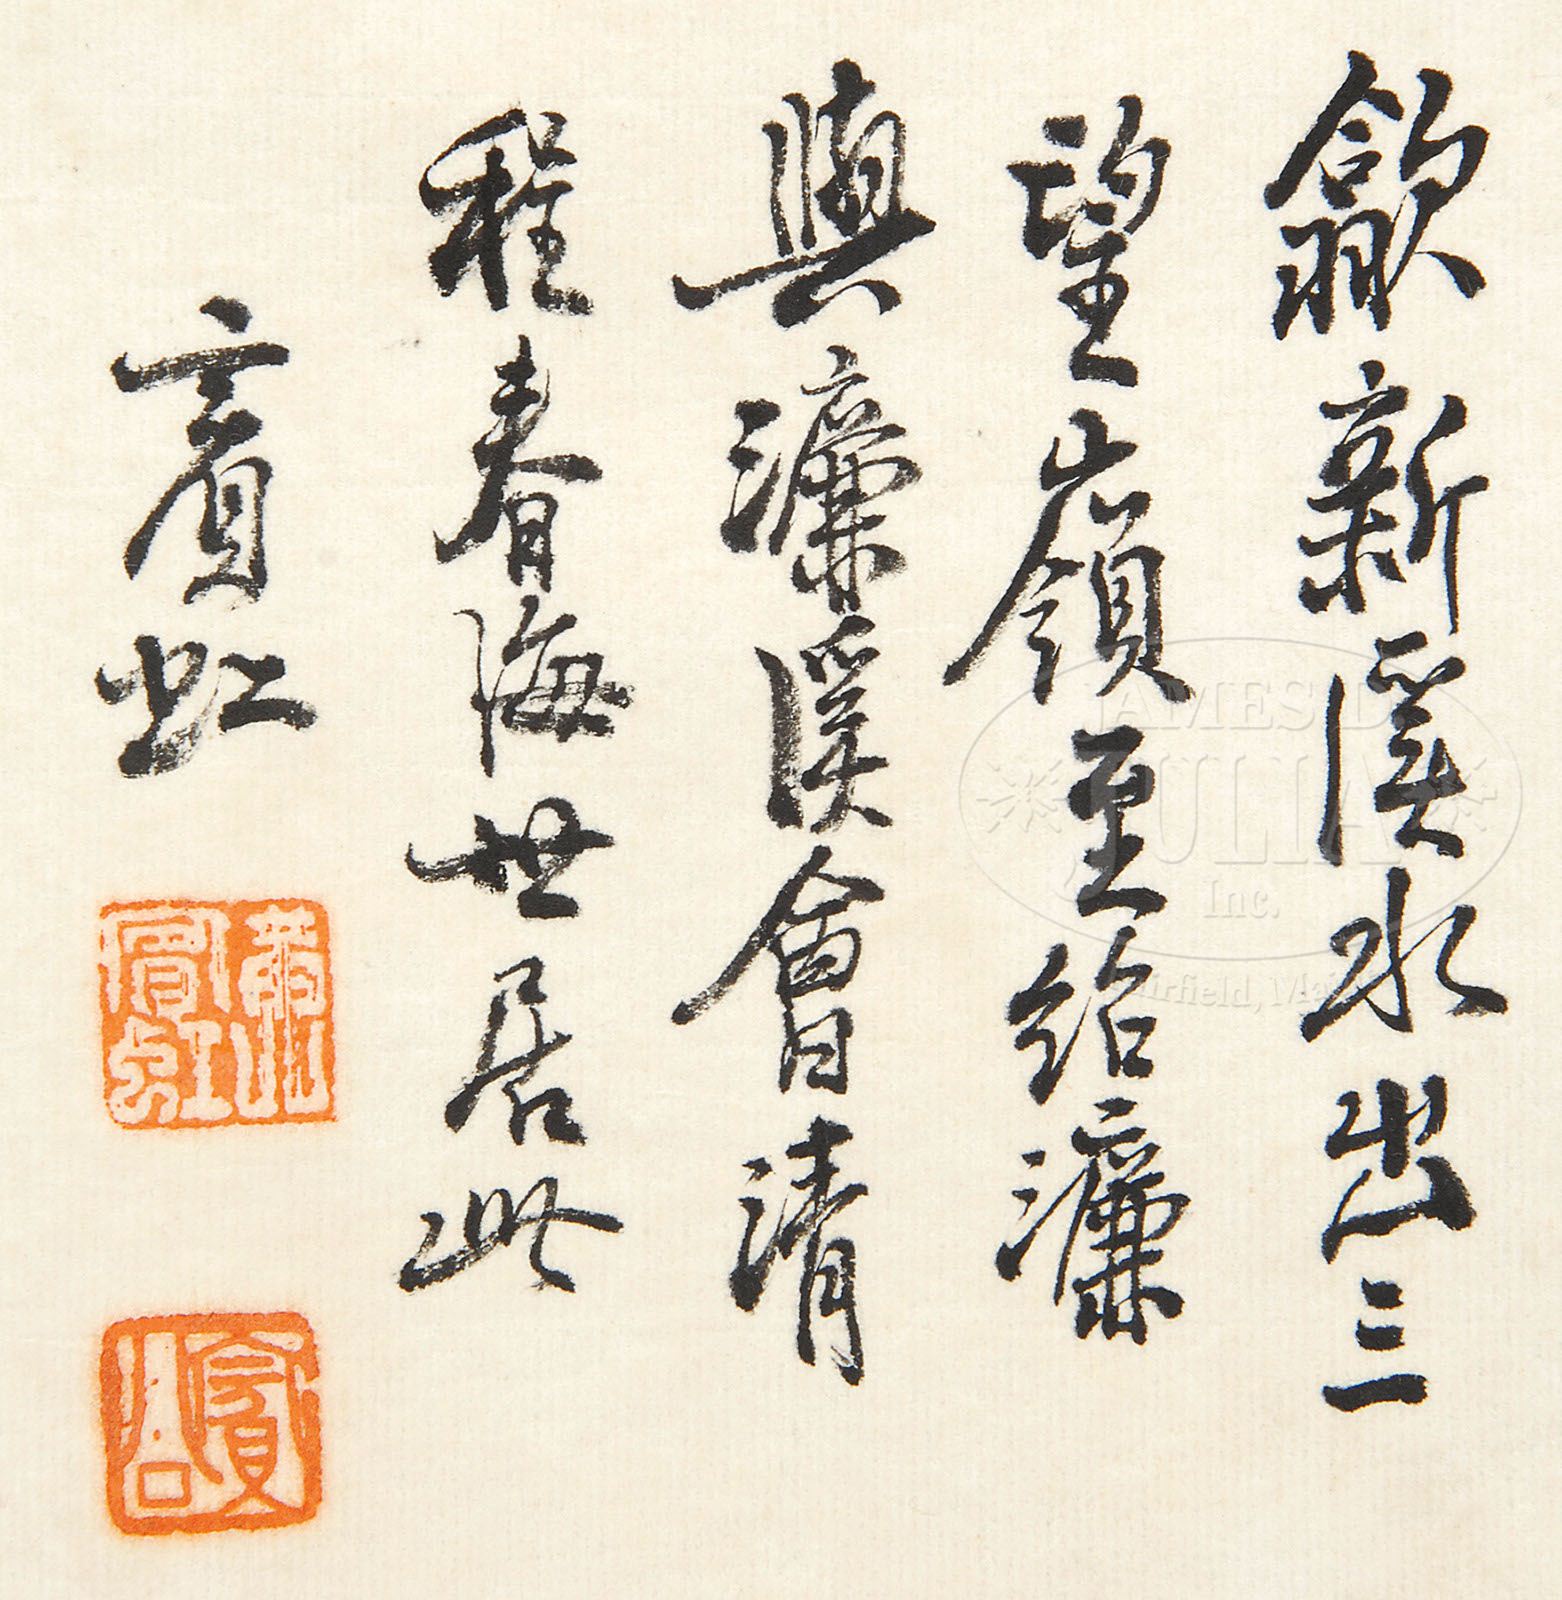 歙新溪水出三
望嶺至紿濂
與濂溪會清
程春海世居此
賓虹
黃山賓虹
JAMES D.
JULIA
Inc.
Fairfield, Maine